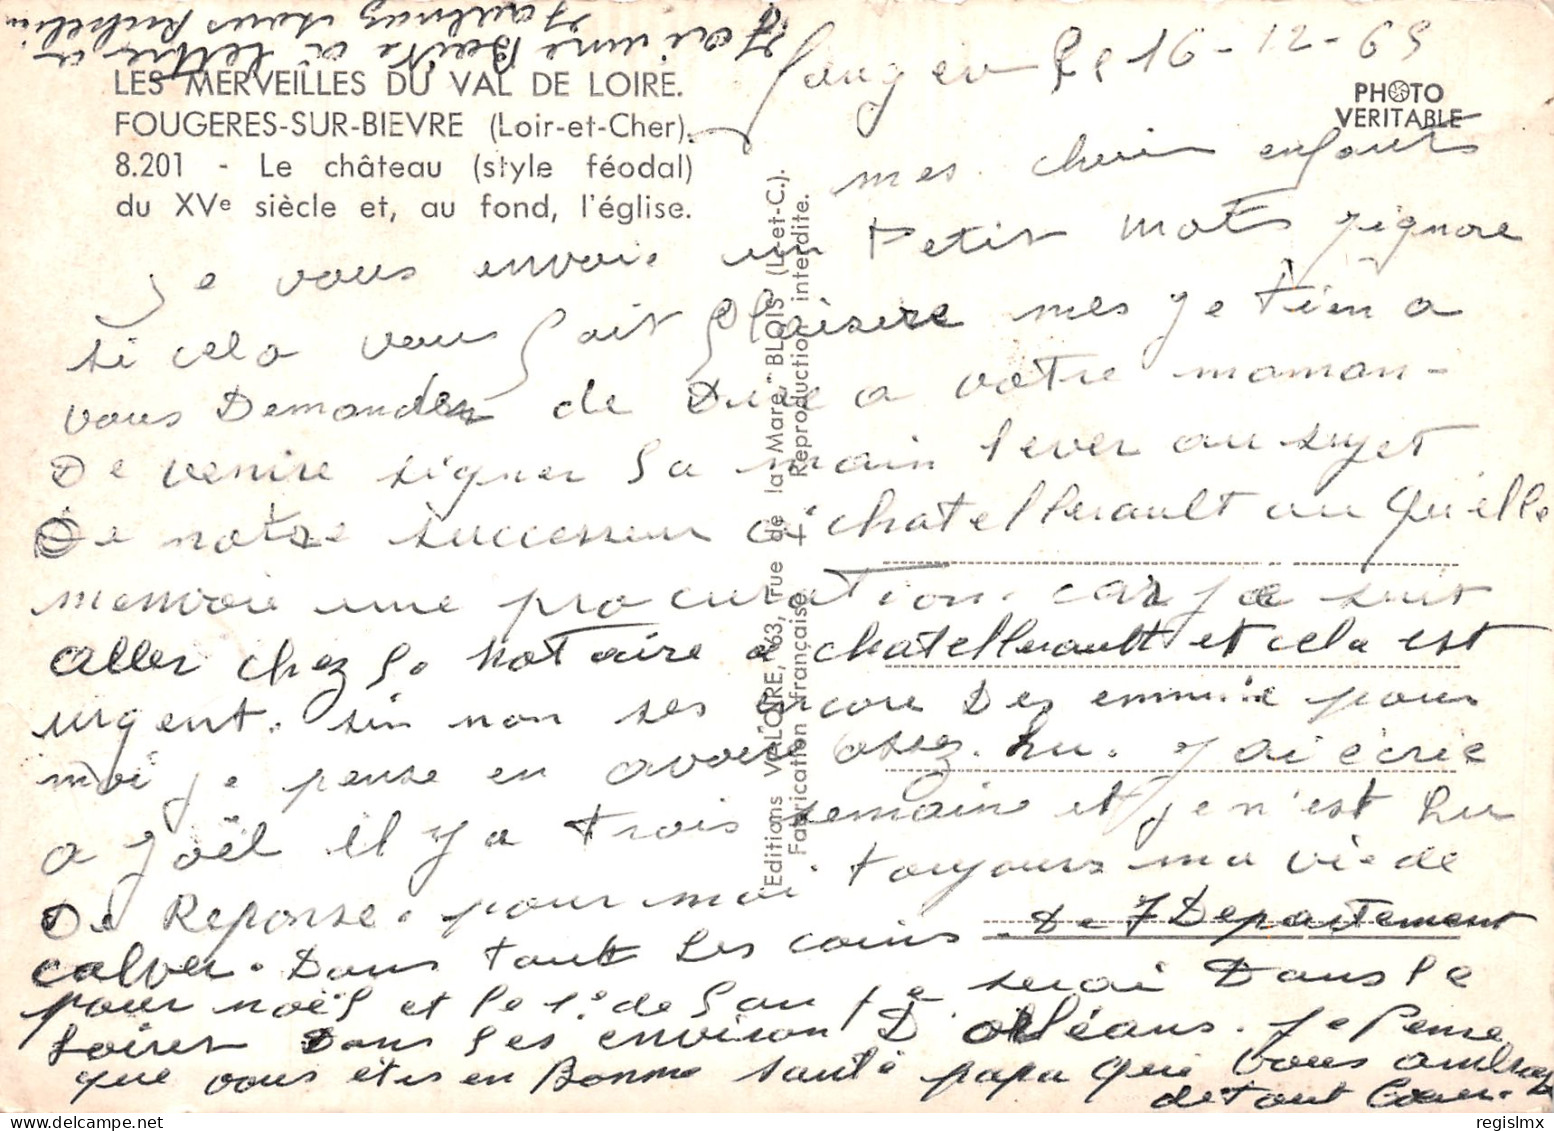 J'ai une Boite a lettre a
Jaulnay sous Richelieu
LES MERVEILLES DU VAL DE LOIRE.
FOUGERES-SUR-BIEVRE (Loir-et-Cher).
8.201 - Le château (style féodal)
du XVe siècle et, au fond, l'église.
PHOTO
VERITABLE
le 16-12-69
mes cheris enfants
je vous envoie un Petit mots j'ignore
si cela vous fait plaisire mes je tien a
vous Demander de Dire a votre maman-
De venire signer la main lever au sujet
De notre successeur a chatellerault ou qu'elle
m'envoie une procuration. car je suit
aller chez le notaire a chatellerault et cela est
urgent. sin non ses encore Des ennuie pour
moi je pense en avoire assez. hu. J'ai écrie
a Joël il y a trois semaine et je n'est hu
De Reponse. pour moi toujours ma vie de
calver. Dans tout les coins. De 7 Departement
pour noël et le 1º de l'an je serai Dans le
Loiret Dans les environ D'orléans. je Pense
que vous étes en Bonne santé papa qui vous
de tout Coeur.
"Editions VALOIRE, 63, rue de la Mare, BLOIS" (L.-et-C.).
Fabrication française. + Reproduction interdite.
regislmx